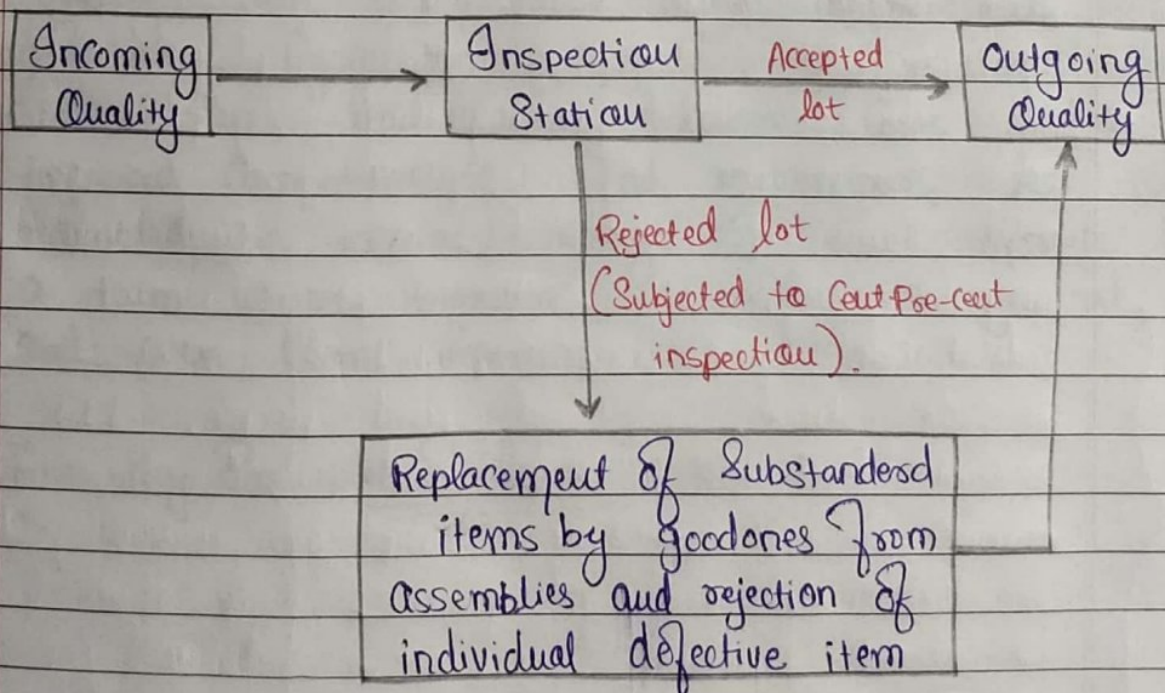 Incoming
Quality
Inspection
Station
Accepted
lot
Outgoing
Quality
Rejected lot
(Subjected to Cent-Per-cent
inspection).
Replacement of Substanderd
items by goodones from
assemblies and rejection of
individual defective item